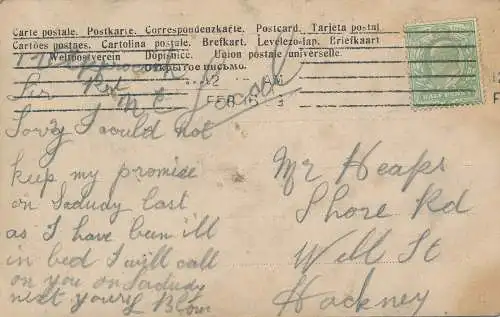 Carte postale. Postkarte. Correspondenzkarte. Postcard. Tarjeta postal
Cartões postaes. Cartolina postale. Brefkort. Levelezo-lap. Briefkaart
Weltpostverein Dopisnice. Union postale universelle.
Открытое письмо.
Rd
Sir
FEB
HALF PENNY
Sorry I could not
keep my promise
on Saduday last
as I have been ill
in bed I will call
on you on Saduday
next yours
Mr Heaps
Shore Rd
Well St
Hackney